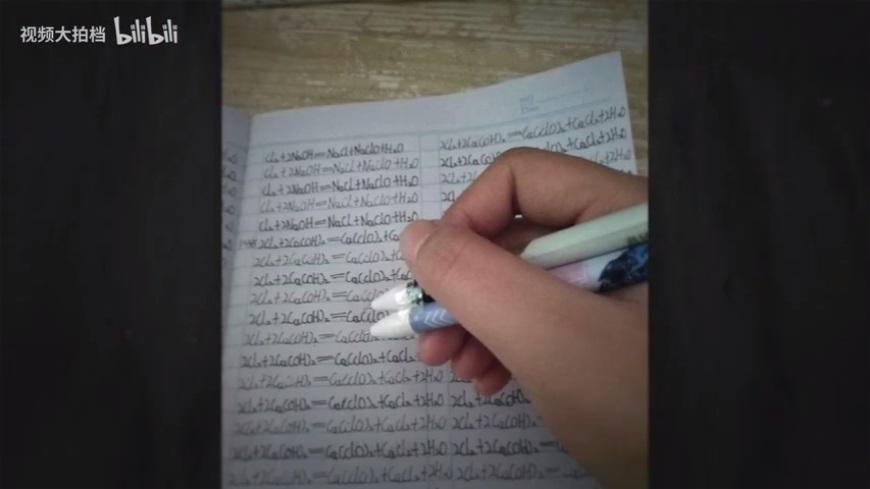 视频大拍档 bilibili
Cl₂+2NaOH=NaCl+NaClO+H₂O
Cl₂+2NaOH=NaCl+NaClO+H₂O
Cl₂+2NaOH=NaCl+NaClO+H₂O
Cl₂+2NaOH=NaCl+NaClO+H₂O
Cl₂+2NaOH=NaCl+NaClO+H₂O
2Cl₂+2Ca(OH)₂=Ca(ClO)₂+
2Cl₂+2Ca(OH)₂=Ca(ClO)₂+
2Cl₂+2Ca(OH)₂=Ca(ClO)₂+
2Cl₂+2Ca(OH)₂=Ca(ClO)₂
2Cl₂+2Ca(OH)₂=Ca(ClO)
2Cl₂+2Ca(OH)₂=Ca(ClO)₂
2Cl₂+2Ca(OH)₂=Ca(ClO)₂+CaCl₂
2Cl₂+2Ca(OH)₂=Ca(ClO)₂+CaCl₂+2H₂O
2Cl₂+2Ca(OH)₂=Ca(ClO)₂+CaCl₂+2H₂O
2Cl₂+2Ca(OH)₂=Ca(ClO)₂+CaCl₂+2H₂O
2Cl₂+2Ca(OH)₂=Ca(ClO)₂+CaCl₂+2H₂O
2Cl₂+2Ca(OH)₂=Ca(ClO)₂+CaCl₂+2H₂O
2Cl₂+2Ca(OH)₂=Ca(ClO)₂+CaCl₂+2H₂O
2Cl₂+2Ca(O Ca(ClO)₂+CaCl₂+2H₂O
2Cl₂+2 CaCl₂+2H₂O
2Cl +2H₂O
2Cl₂+2Ca(OH)₂
2Cl₂+2Ca(OH)₂
2Cl₂+2Ca(OH)₂=
2Cl₂+2Ca(OH)₂=